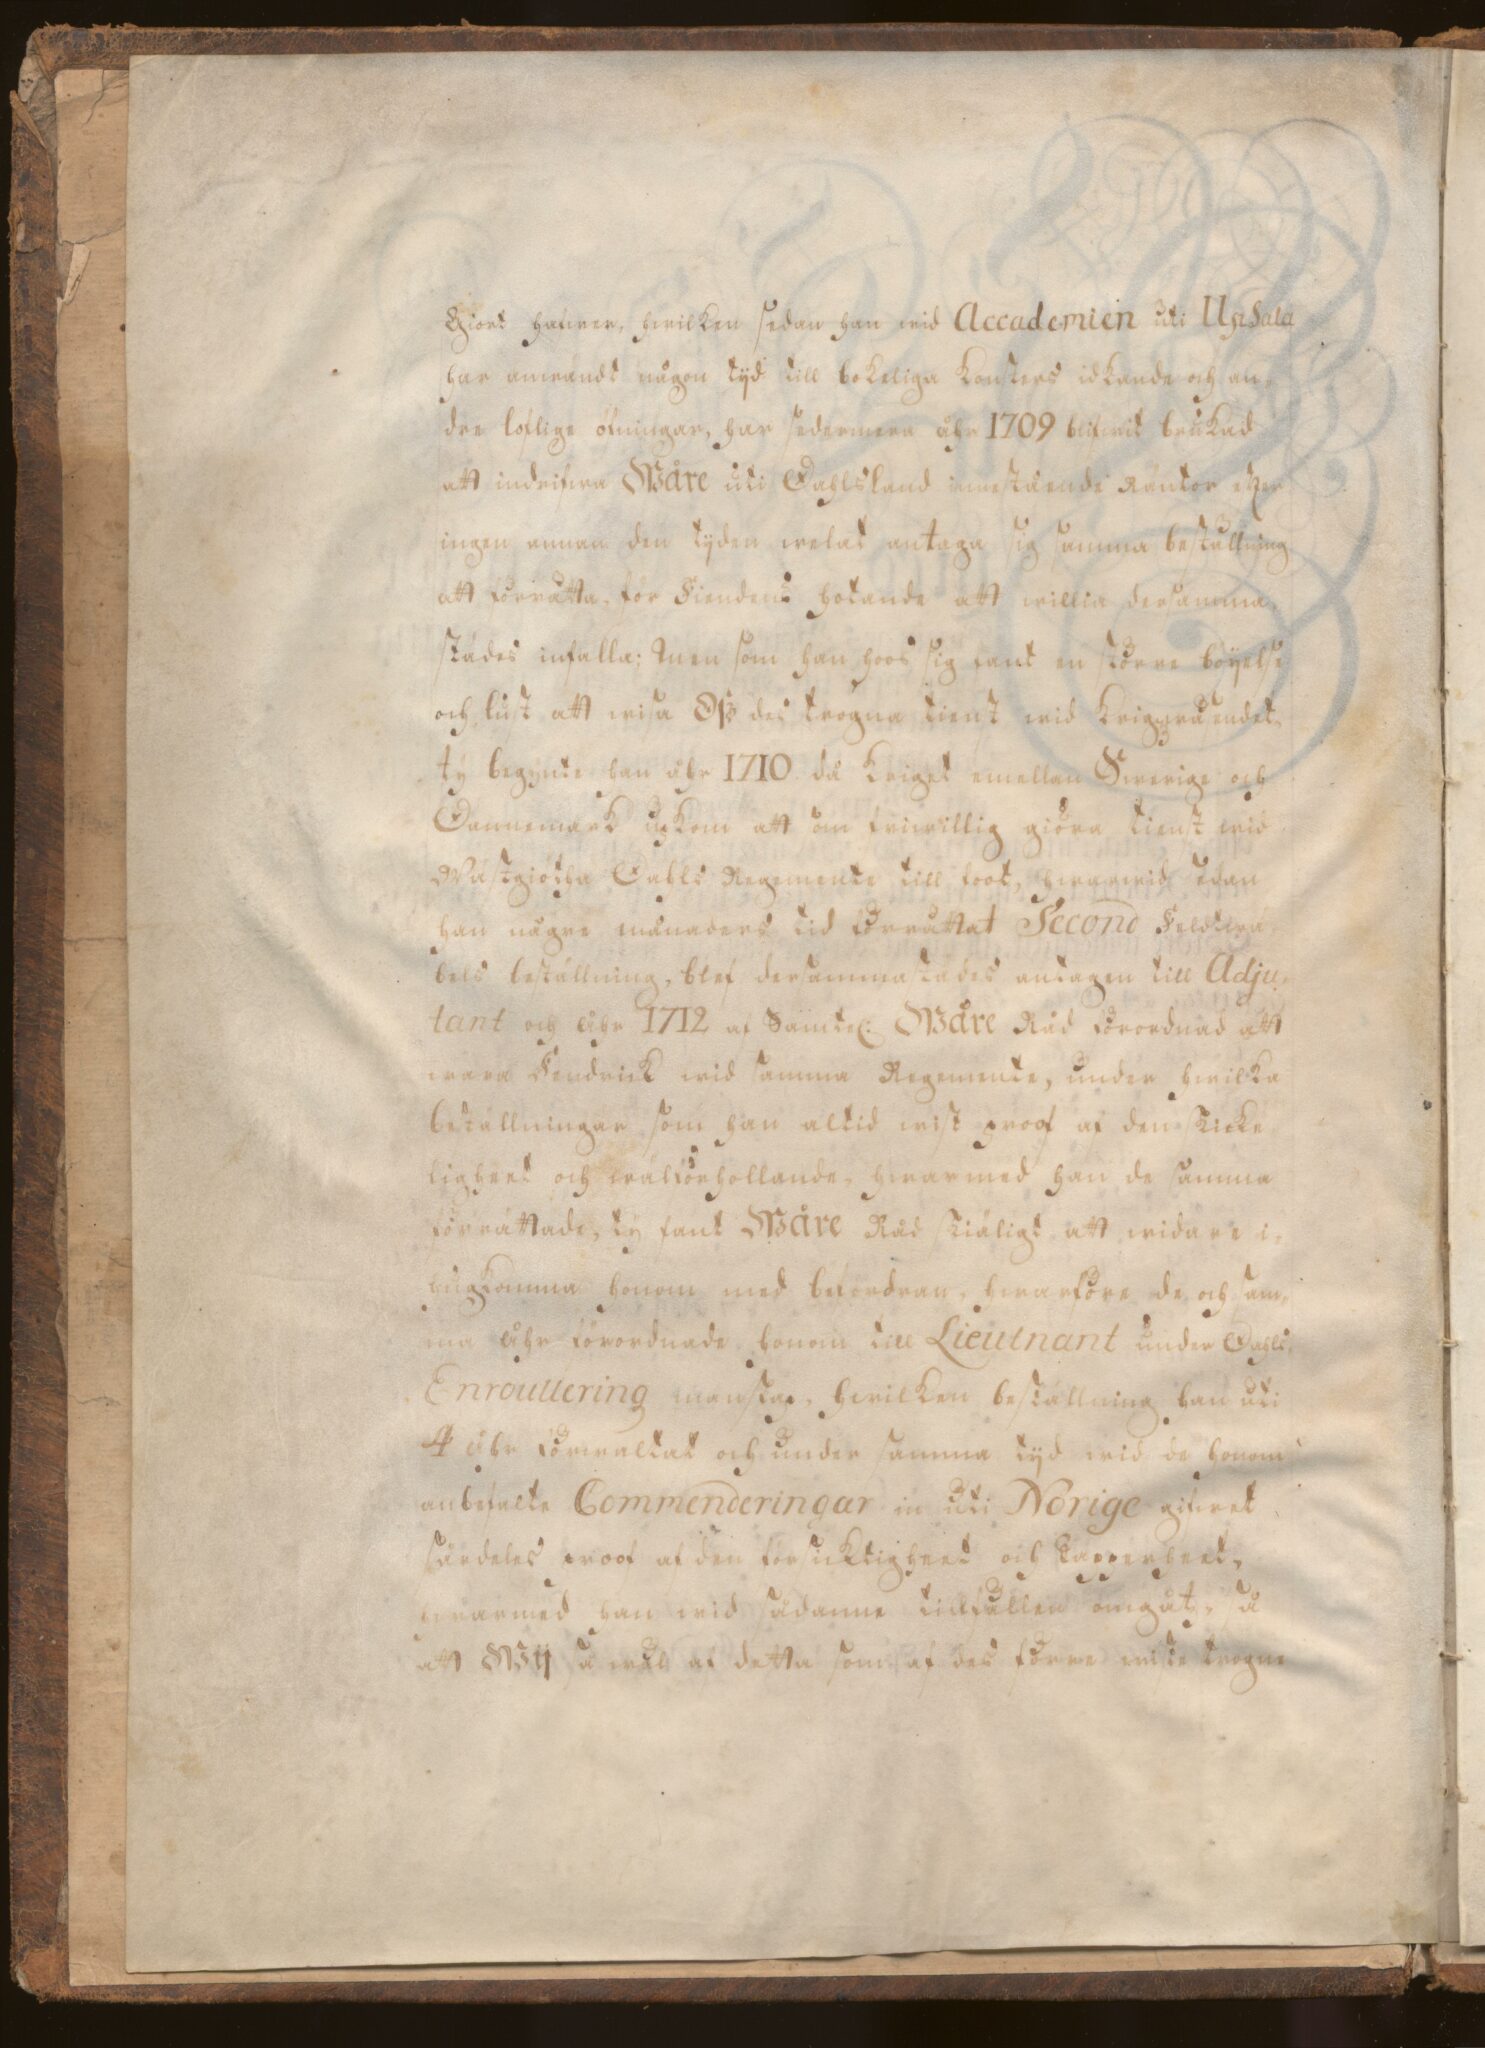 Giort hafwer, hwilken sedan han wid Accademien uti UpSala
har anwändt någon tyd till bokeliga Konsters idkande och an-
dre loflige öfningar, har sedermera åhr 1709 blifwit brukad
att indrifwa Wåre uti Dahlsland innestående Räntor efter
ingen annan den tyden welat antaga sig samma beställning
att förrätta, för Fiendens hotande att willia dersamma-
städes infalla; Men som han hoos sig fant en större böyelse
och lust att wisa Oß des trogna tienst wid Krigzwäsendet
ty begynte han åhr 1710 då Kriget emellan Swerige och
Dannemark upkom att som friwillig giöra tienst wid
Wästgiötha Dahls Regemente till foot, hwarwid sedan
han någre månaders tid förrättat Second Feldtwä-
bels beställning, blef dersammastädes antagen till Adju-
tant och åhr 1712 af Samtel: Wåre Råd förordnad att
wara Fendrick wid samma Regemente, under hwilka
beställningar som han altid wist proof af den skicke-
ligheet och wälförhollande, hwarmed han de samma
förrättade, ty fant Wåre Råd skiäligt att widare i-
hugkomma honom med befordran, hwarföre de och sam-
ma åhr förordnade honom till Lieutnant under Dahls
Enroullering manskap, hwilken beställning han uti
4 åhr förwaltat och under samma tyd wid de honom
anbefalte Commenderingar in uti Norige gifwet
särdeles proof af den försicktigheet och tapperheet,
hwarmed han wid sådanne tillfällen omgåt, så
att Wij så wäl af detta som af des förre wiste trogne